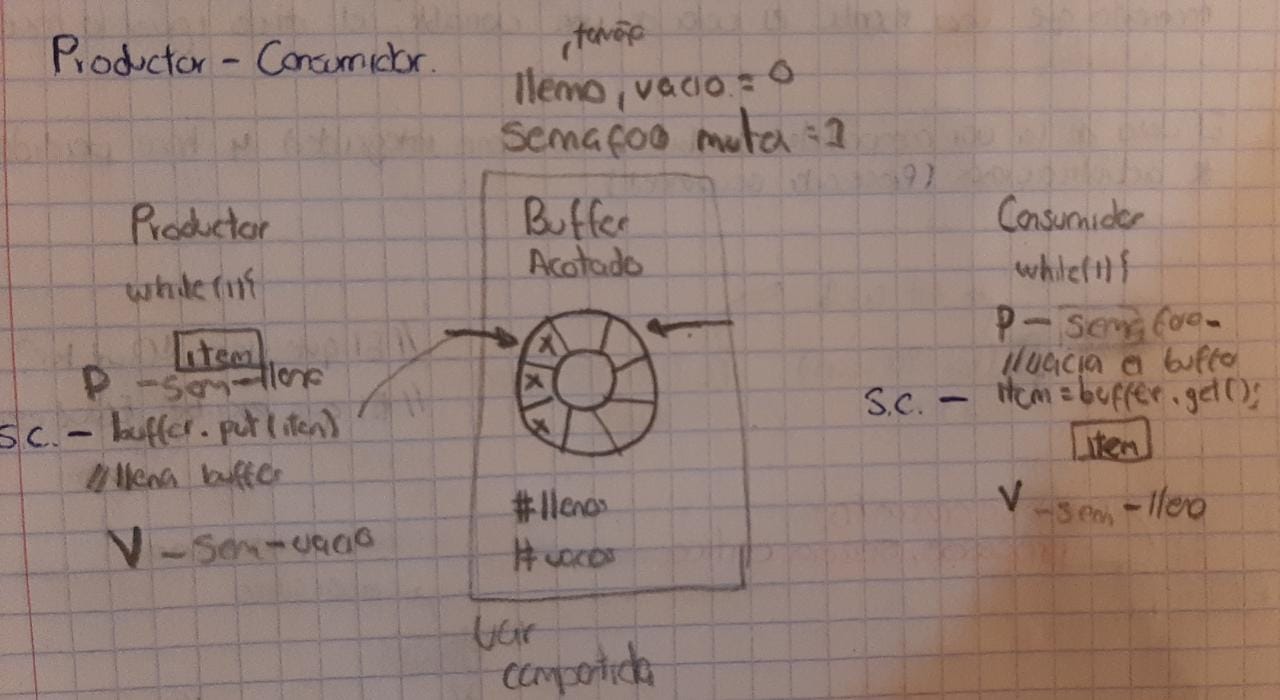 Productor - Consumidor.
, tamaño
lleno, vacio = 0
Semafoo mutex = 1
Productor
while(1){
item
P - sem - lleno
S.C. - buffer.put(iten)
//llena buffer
V - sem - vacio
Buffer
Acotado
x
x
x
#llenos
#vacos
Var
compartida
Consumidor
while(1){
P - semafoo -
//vacia el buffer
S.C. - item = buffer.get();
item
V - sem - lleno